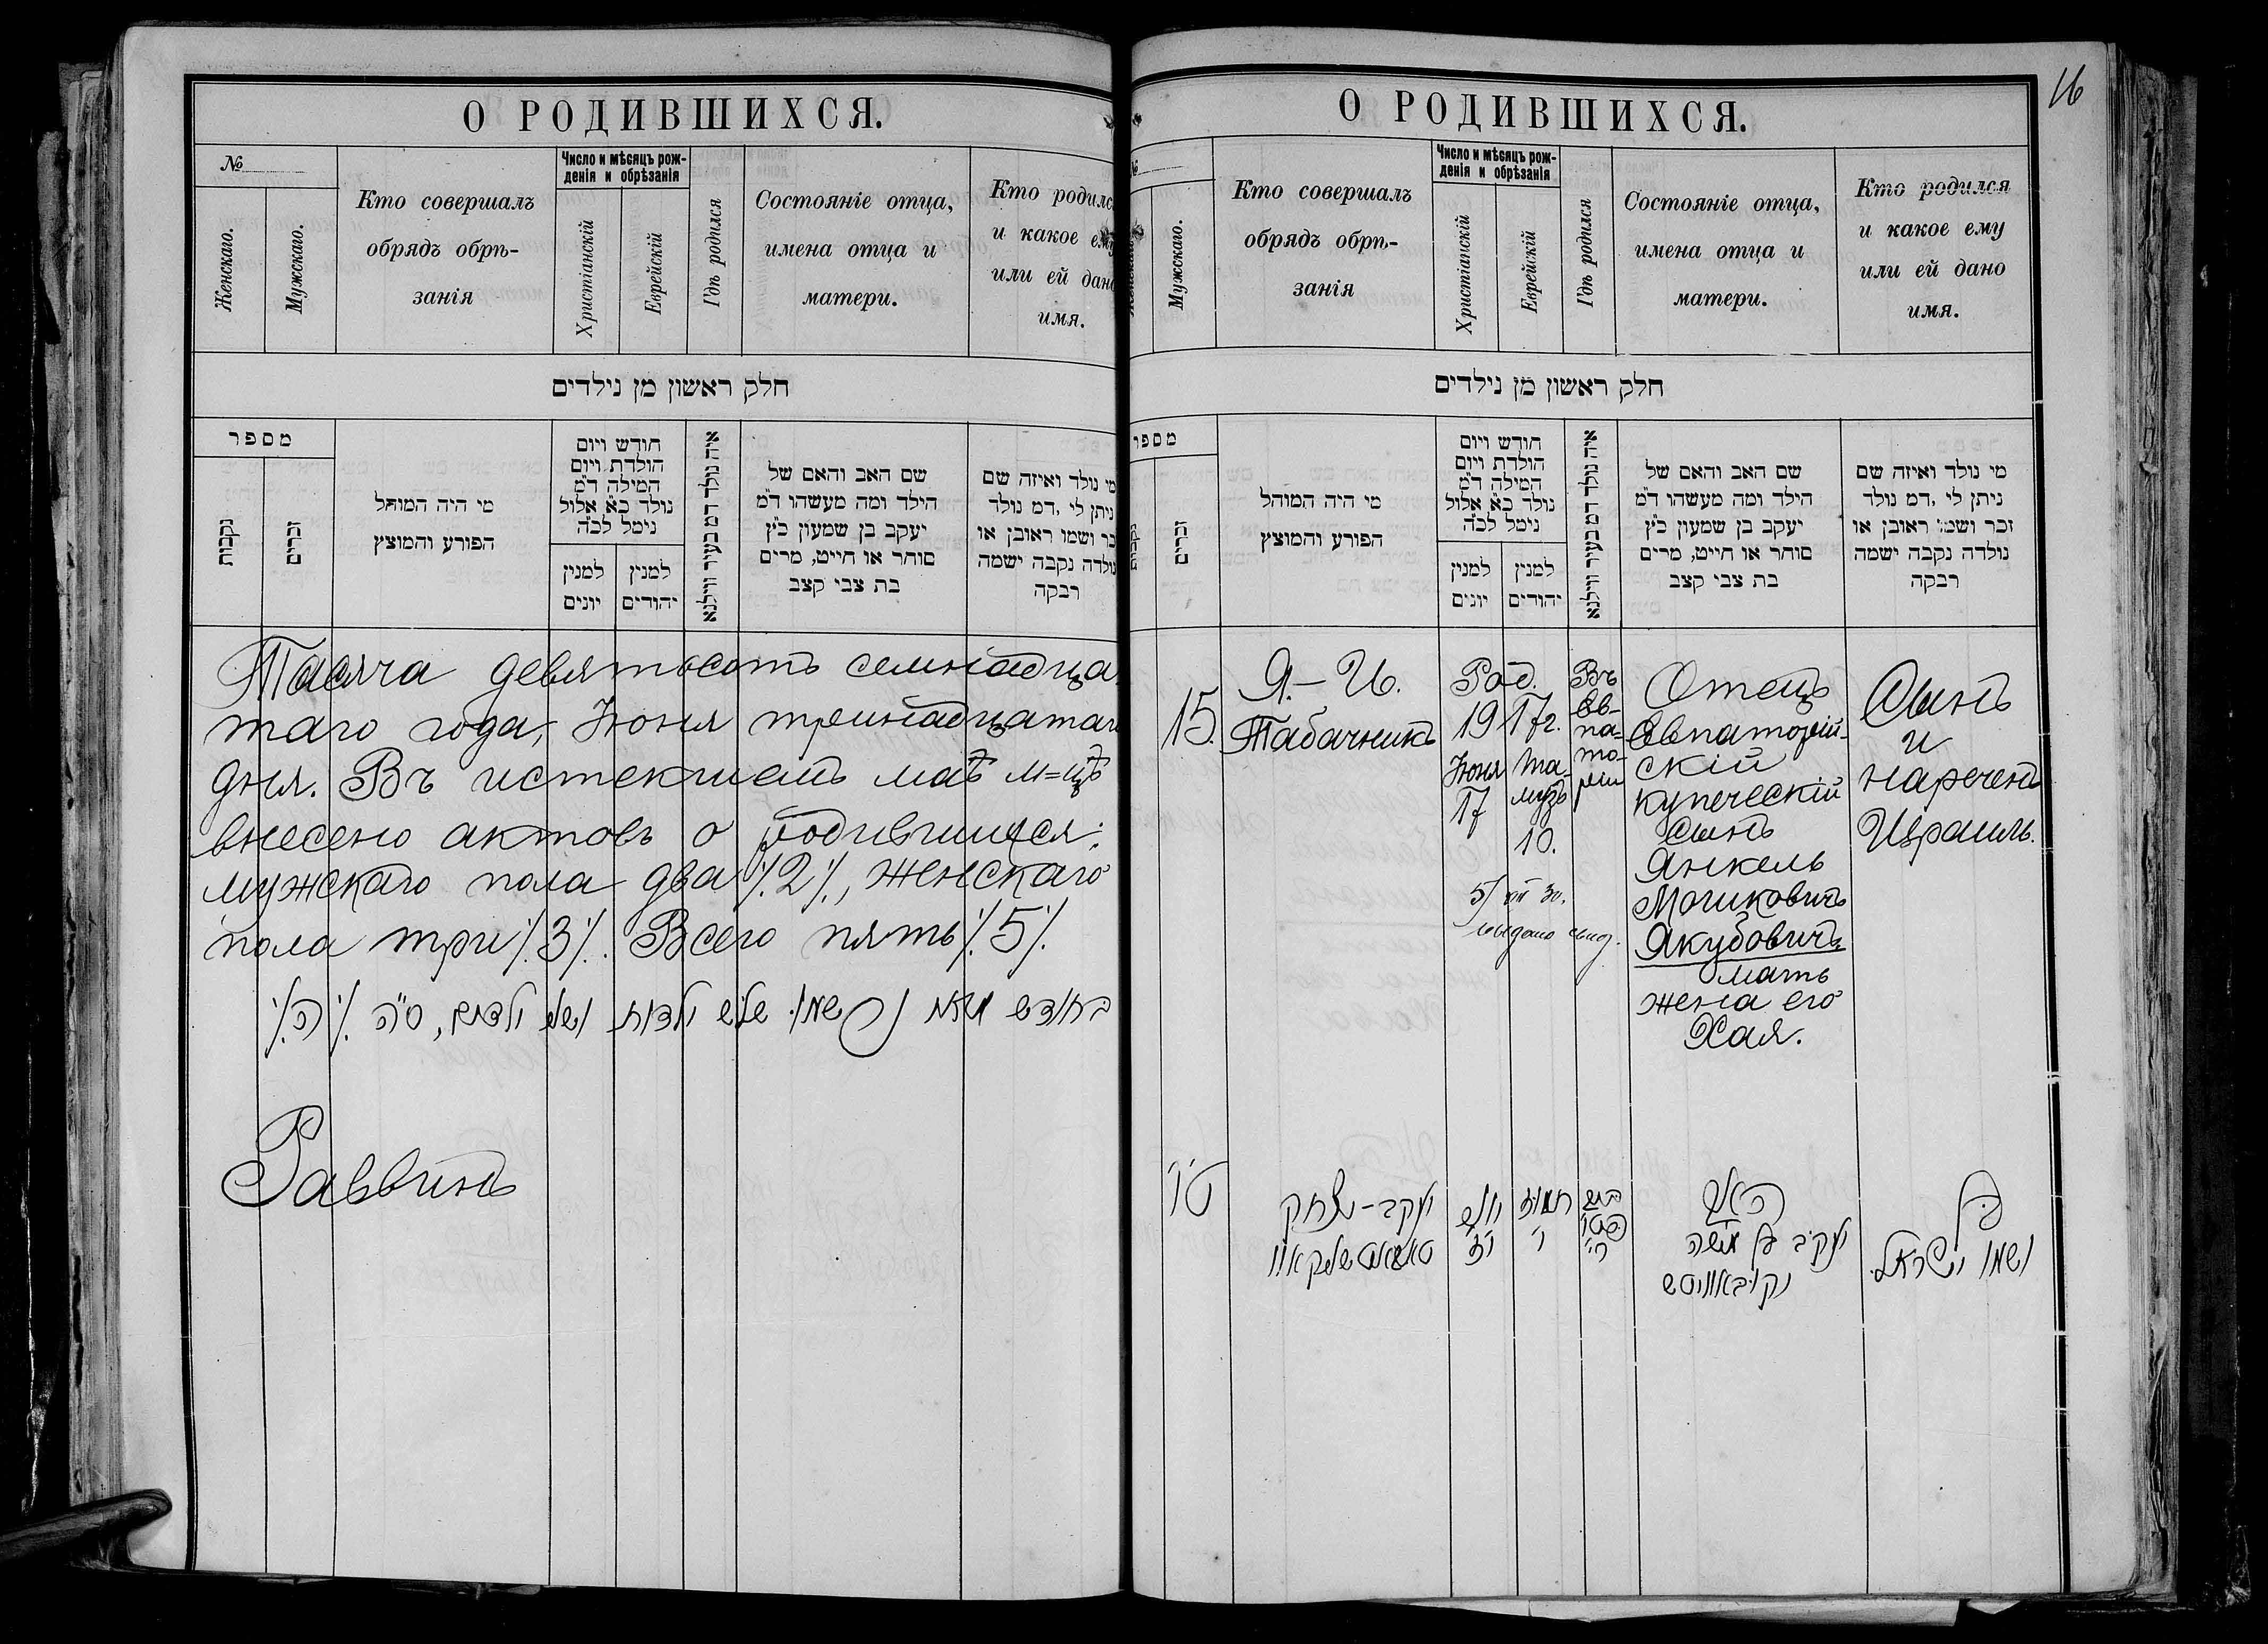 О РОДИВШИХСЯ.
№
Женскаго.
Мужскаго.
Кто совершалъ
обрядъ обрѣ-
занія
Число и мѣсяцъ рож-
денія и обрѣзанія
Христіанскій
Еврейскій
Гдѣ родился
Состояніе отца,
имена отца и
матери.
Кто родился
и какое ему
или ей дано
имя.
חלק ראשון מן נילדים
מספר
נקבות
זכרים
מי היה המוהל
הפורע והמוצץ
חודש ויום
הולדת ויום
המילה ד״מ
נולד כ״א אלול
נימל לכ״ה
למנין
יונים
למנין
יהודים
איה נולד דמ בעיר ווילנא
שם האב והאם של
הילד ומה מעשהו ד״מ
יעקב בן שמעון כ״ץ
סוחר או חייט, מרים
בת צבי קצב
מי נולד ואיזה שם
ניתן לי ,דמ נולד
זכר ושמו ראובן או
נולדה נקבה ישמה
רבקה
Тысяча девятьсотъ семнадца-
таго года, Іюня тринадцатаго
дня. Въ истекшемъ маѣ м=цѣ
внесено актовъ о родившихся:
мужскаго пола два ⁒2⁒, женскаго
пола три ⁒3⁒. Всего пять ⁒5⁒.
Раввинъ
16
О РОДИВШИХСЯ.
№
Женскаго.
Мужскаго.
Кто совершалъ
обрядъ обрѣ-
занія
Число и мѣсяцъ рож-
денія и обрѣзанія
Христіанскій
Еврейскій
Гдѣ родился
Состояніе отца,
имена отца и
матери.
Кто родился
и какое ему
или ей дано
имя.
חלק ראשון מן נילדים
מספר
נקבות
זכרים
מי היה המוהל
הפורע והמוצץ
חודש ויום
הולדת ויום
המילה ד״מ
נולד כ״א אלול
נימל לכ״ה
למנין
יונים
למנין
יהודים
איה נולד דמ בעיר ווילנא
שם האב והאם של
הילד ומה מעשהו ד״מ
יעקב בן שמעון כ״ץ
סוחר או חייט, מרים
בת צבי קצב
מי נולד ואיזה שם
ניתן לי ,דמ נולד
זכר ושמו ראובן או
נולדה נקבה ישמה
רבקה
15.
Я.-И.
Табачникъ
Род.
1917г.
Іюня
17
Та-
музъ
10.
Въ
Ев-
па-
то-
ріи
Отецъ
Евпаторій-
скій
купеческій
сынъ
Янкель
Мошковичъ
Якубовичъ
мать
жена его
Хая.
Сынъ
и
нареченъ
Израиль.
ט״ו
יעקב-יצחק
יוני
י״ז
תמוז
י׳
האב
יעקב בן משה
יקובאוויטש
בן
ושמו ישראל.